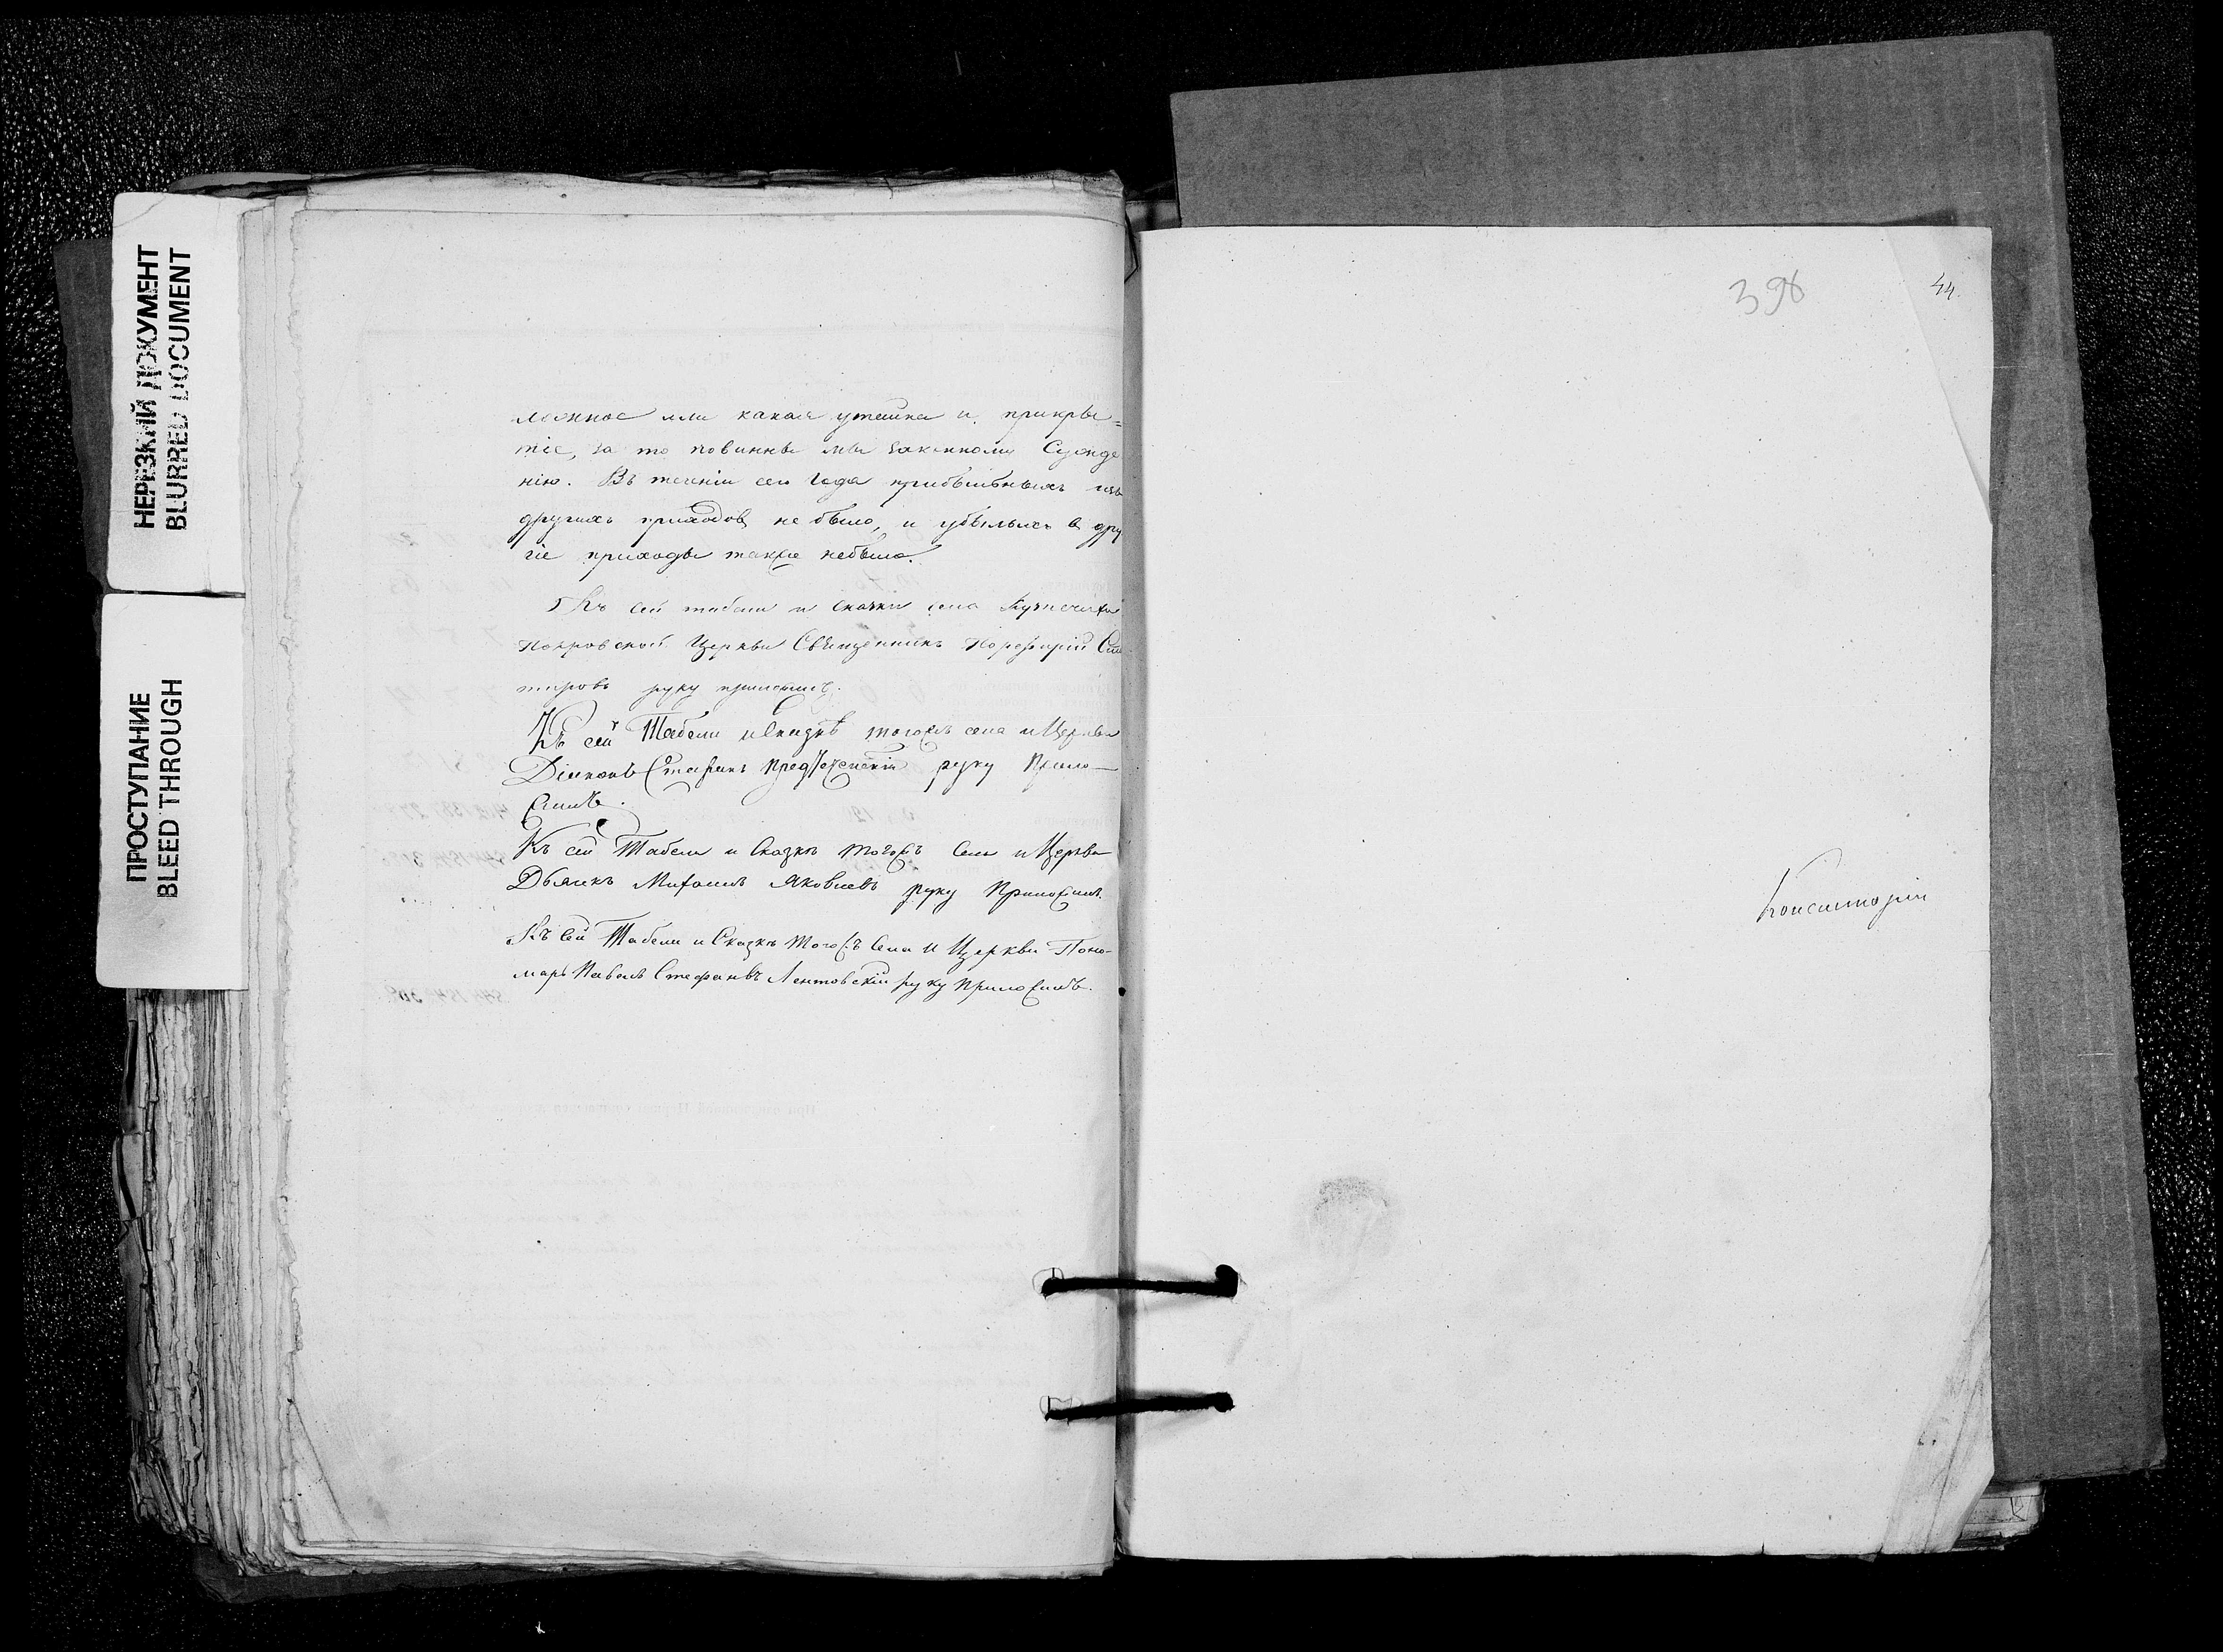 НЕРЕЗКИЙ ДОКУМЕНТ
BLURRED DOCUMENT
ПРОСТУПАНИЕ
BLEED THROUGH
ложное или какая утайка и прикры=
тіе, за то повинны мы законному Сужде
нію. Въ теченіи сего года прибывшихъ изъ
другихъ приходовъ не было, и убылыхъ в дру
гіе приходы также небыло.
Къ сей табели и сказки села Кузнечихи
Покровской Церкви Священникъ Порфирій
тировъ руку приложилъ.
Къ сей Табели и Сказкѣ тогожъ села и Церкви
Діаконъ Стефанъ руку Прило-
жилъ.
Къ сей Табели и Сказкѣ тогожъ Села и Церкви
Дьячекъ Михаилъ Яковлевъ руку Приложилъ.
Къ Сей Табели и Сказкѣ тогожъ Села и Церкви Поно-
марь Павелъ Стефановъ Лентовскій руку Приложилъ.
398
44.
Консисторіи